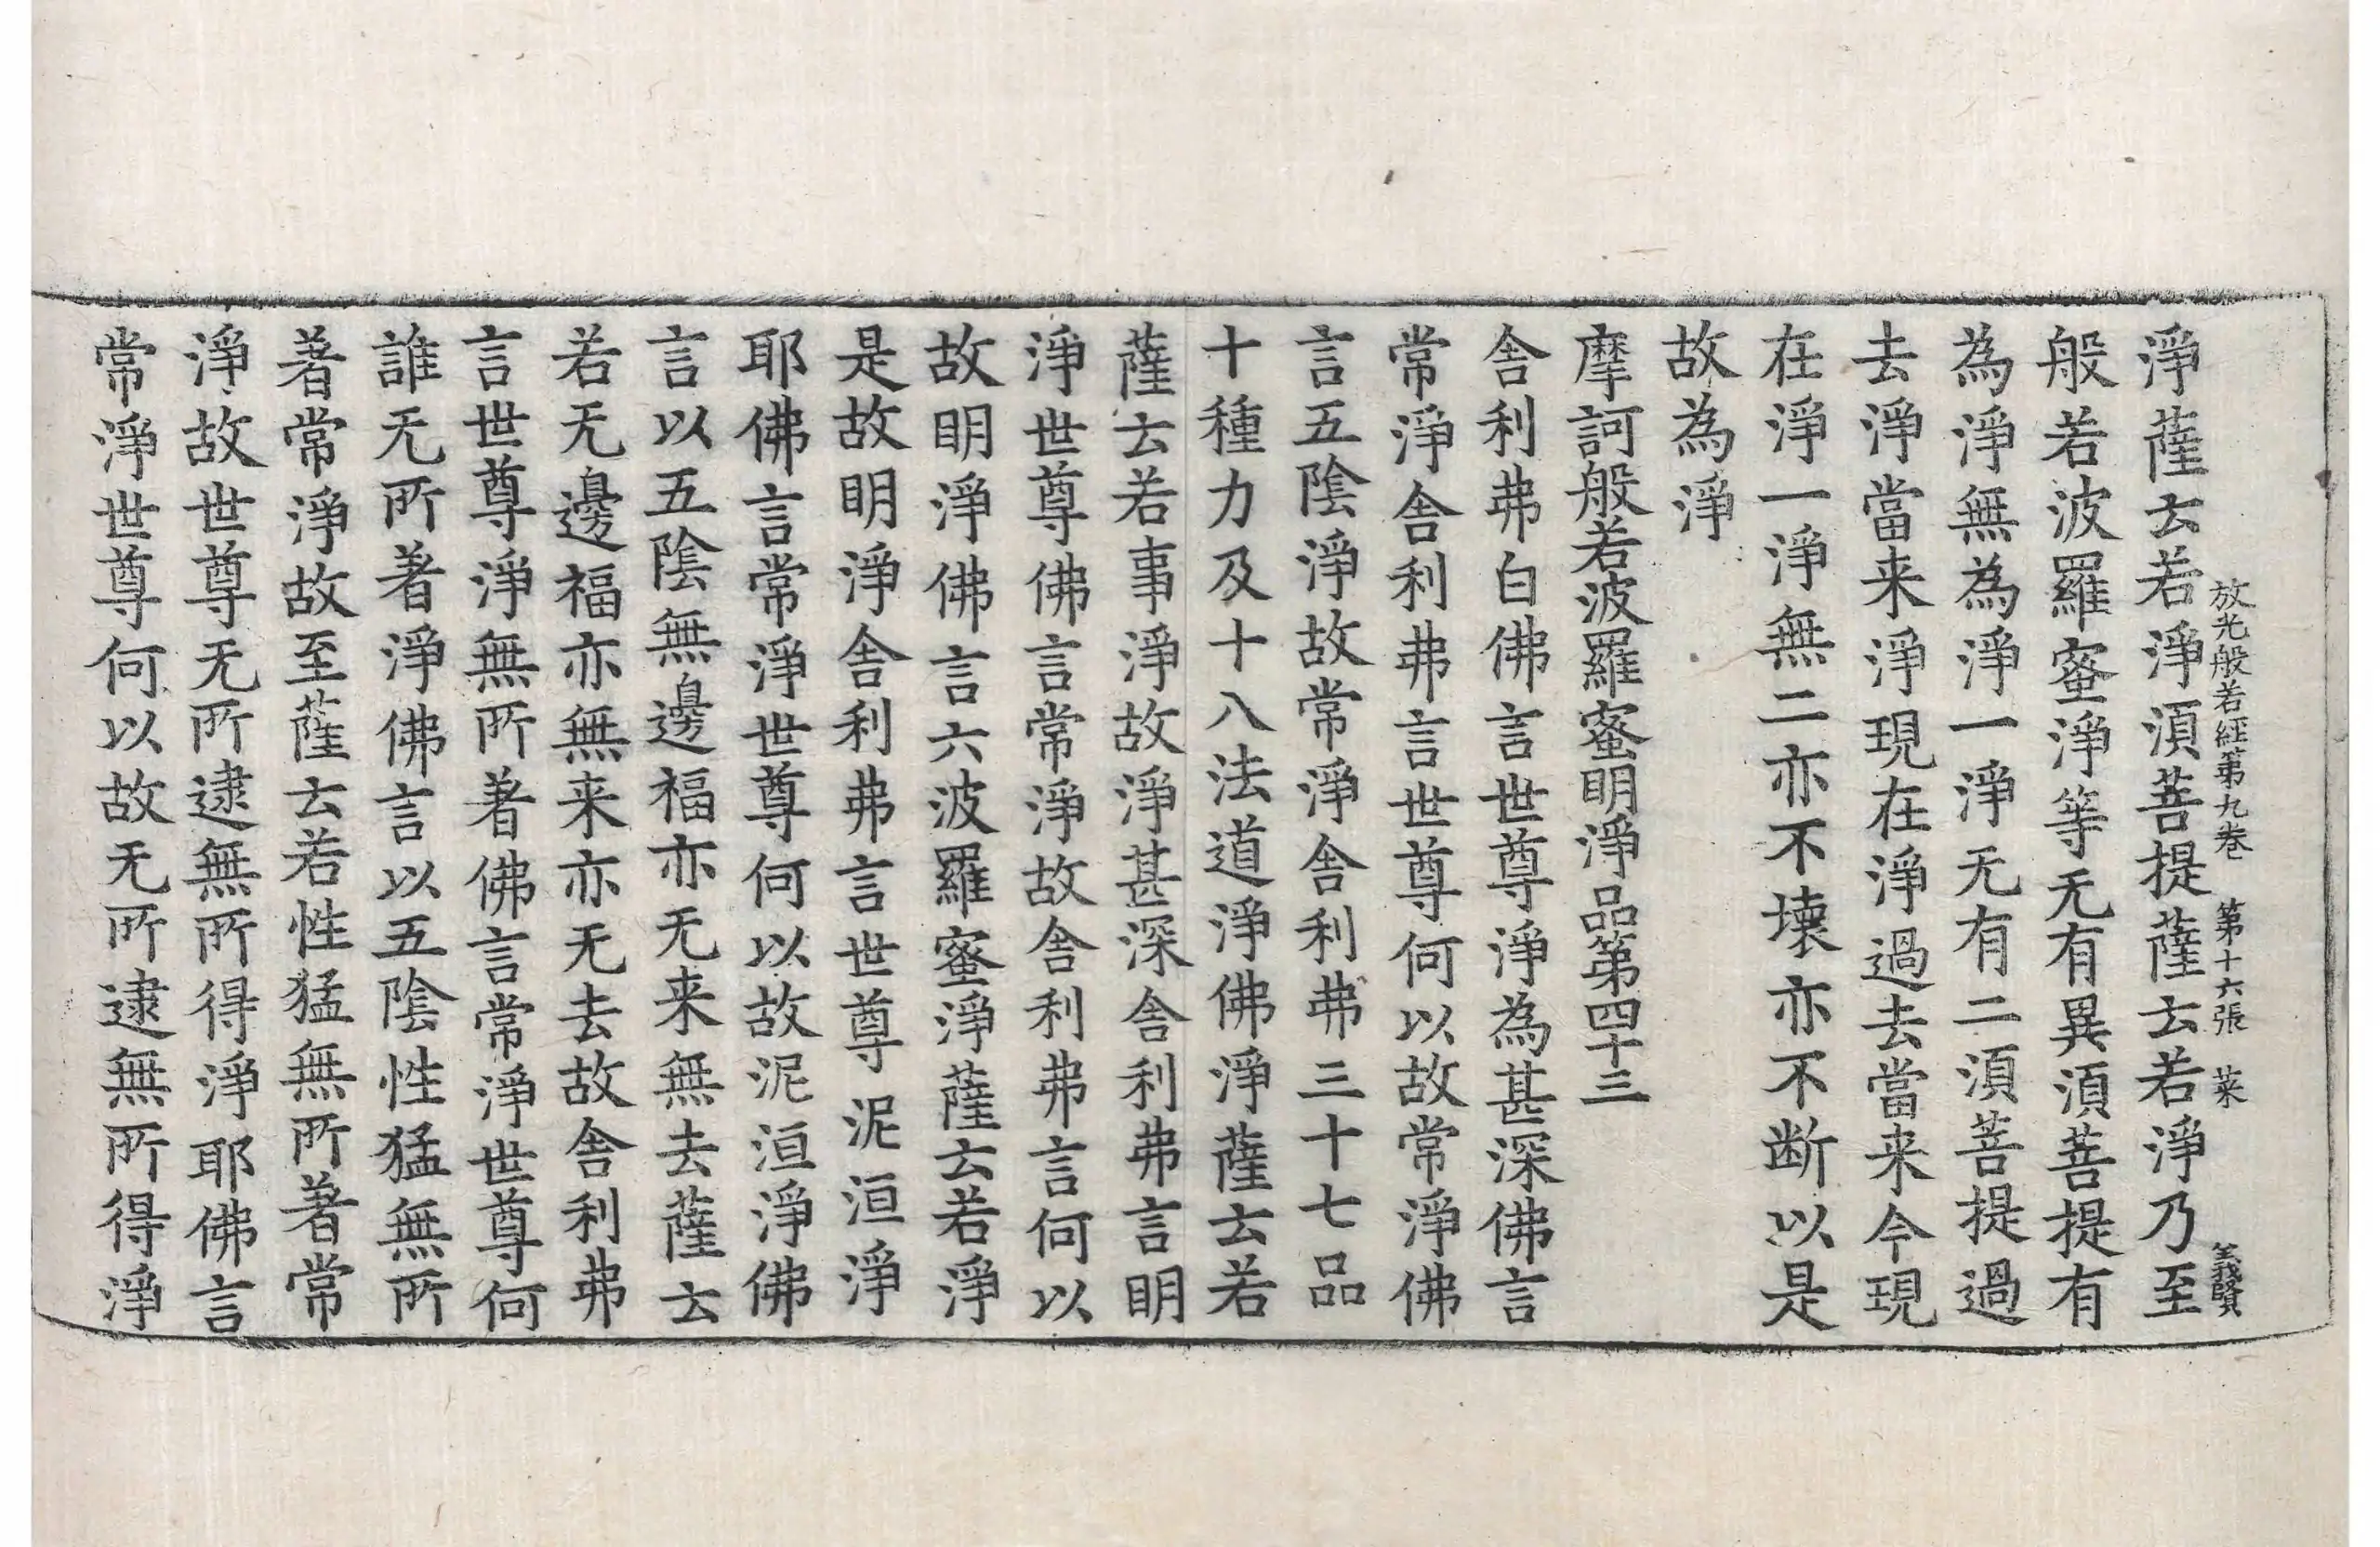 放光般若經第九卷 第十六張 菜 義賢
淨薩云若淨湏菩提薩云若淨乃至
般若波羅蜜淨等无有異湏菩提有
為淨無為淨一淨无有二湏菩提過
去淨當来淨現在淨過去當来今現
在淨一淨無二亦不壊亦不断以是
故為淨
摩訶般若波羅蜜明淨品第四十三
舍利弗白佛言世尊淨為甚深佛言
常淨舍利弗言世尊何以故常淨佛
言五陰淨故常淨舍利弗三十七品
十種力及十八法道淨佛淨薩云若
薩云若事淨故淨甚深舍利弗言明
淨世尊佛言常淨故舍利弗言何以
故明淨佛言六波羅蜜淨薩云若淨
是故明淨舍利弗言世尊泥洹淨
耶佛言常淨世尊何以故泥洹淨佛
言以五陰無邊福亦无来無去薩云
若无邊福亦無来亦无去故舍利弗
言世尊淨無所著佛言常淨世尊何
誰无所著淨佛言以五陰性猛無所
著常淨故至薩云若性猛無所著常
淨故世尊无所逮無所得淨耶佛言
常淨世尊何以故无所逮無所得淨